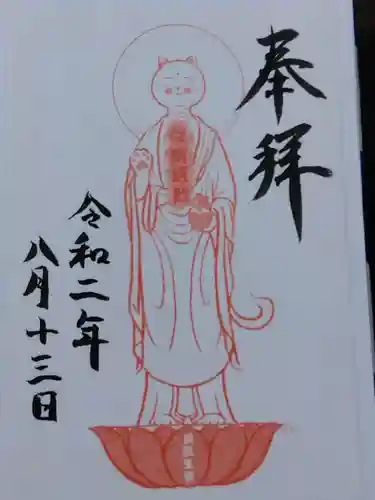 奉拝
令和二年
八月十三日